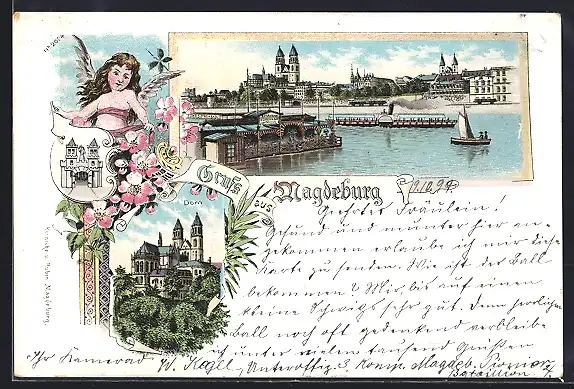 Gruss
aus
Magdeburg
Dom
Geehrtes Fräulein!
Gesund und munter hier an-
gekommen erlaube ich mir diese
Karte zu senden. Wie ist der Ball
bekommen? Mir, bis auf einen
kleine sehr gut. Dem herrlichen
Ball noch oft gedenkend verbleibe
ich unter vielen tausend Grüßen
Ihr Kamerad
W. Unteroffiz. 3. Komp. Magdeb. Pionier
Bataillon